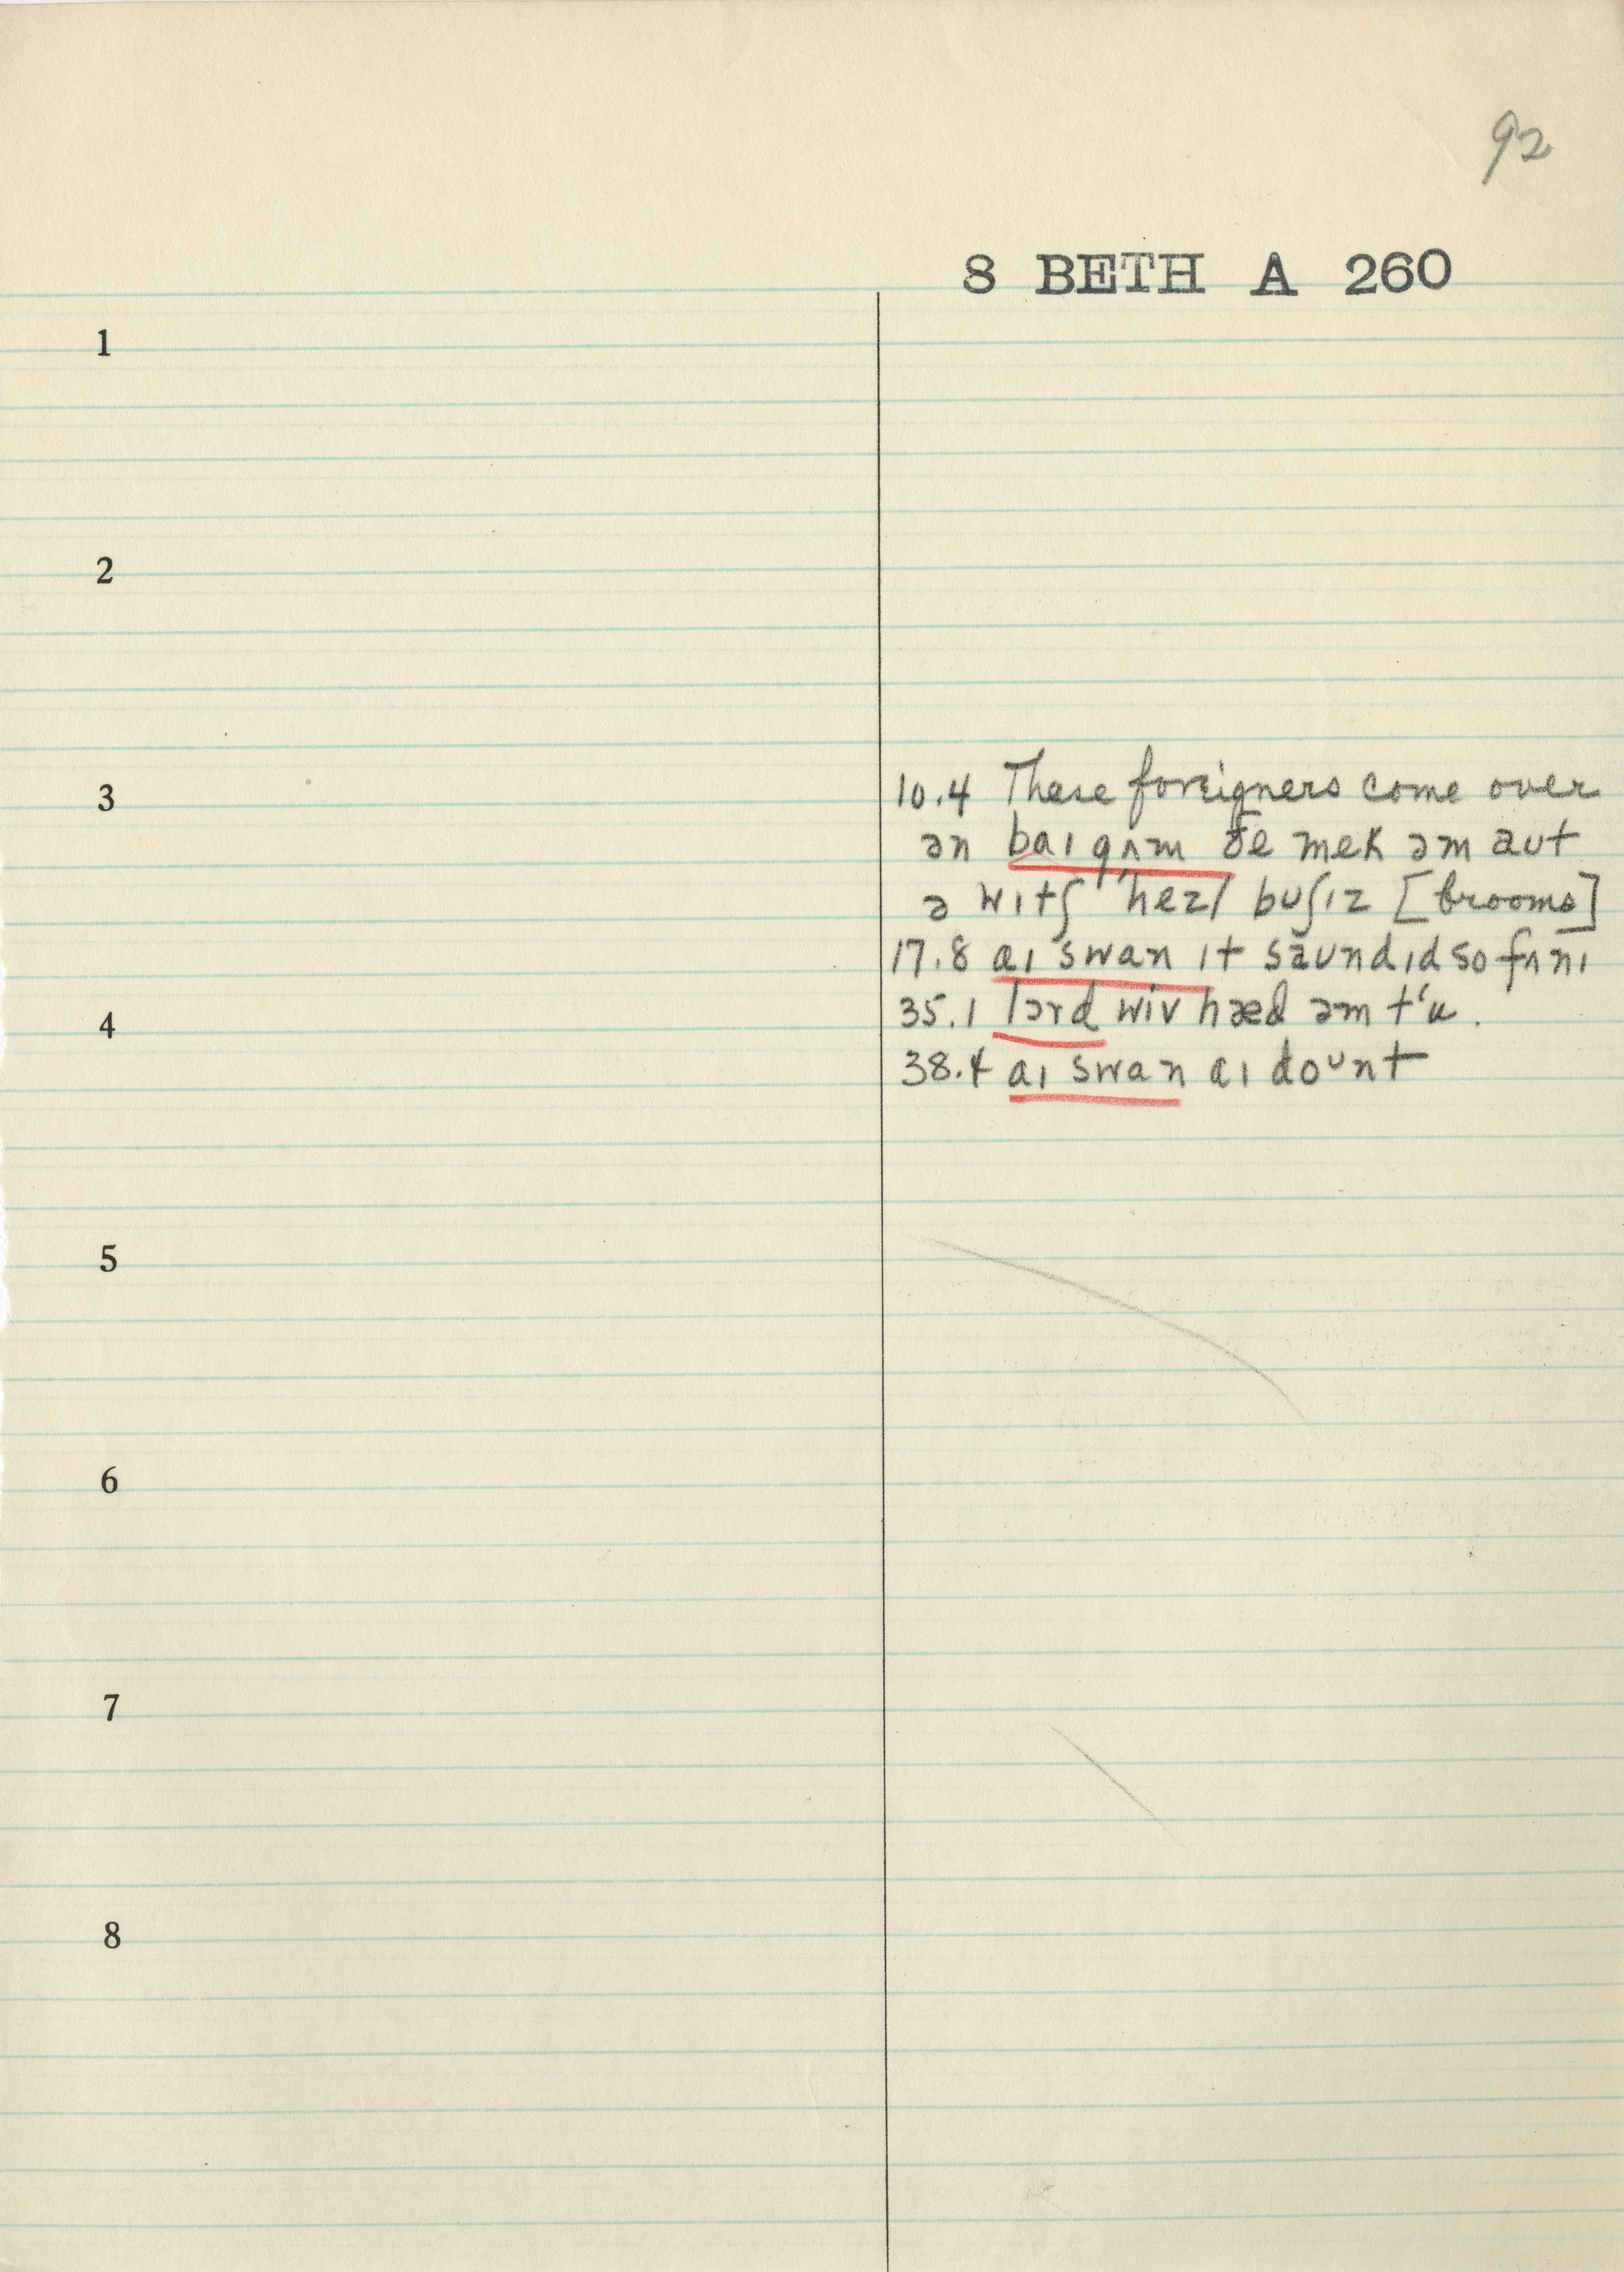 92
8 BETH A 260
1
2
3
10.4 These foreigners come over
ən baɪ gʌm ðe mek əm aut
ə wɪtʃ 'hezl buʃɪz [brooms]
17.8 aɪ swan ɪt saundɪd so fʌnɪ
4
35.1 lɔrd wiv hæd əm tʻu.
38.4 aɪ swan aɪ doᴜnt
5
6
7
8